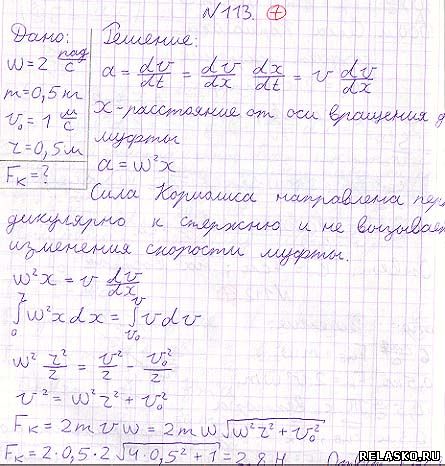 N 113. +
Дано:
ω=2 рад/с
m=0,5 кг
v₀=1 м/с
r=0,5 м
Fк=?
Решение:
a = dv/dt = dv/dx dx/dt = v dv/dx
x-расстояние от оси вращения д
муфты
a = ω²x
Сила Кориолиса направлена пер
дикулярно к стержню и не вызывает
изменения скорости муфты.
ω²x = v dv/dx
∫₀ʳ ω²x dx = ∫ᵥ₀ᵛ v dv
ω² r²/2 = v²/2 - v₀²/2
v² = ω²r² + v₀²
Fк = 2mvω = 2mω√(ω²r² + v₀²)
Fк = 2·0,5·2√(4·0,5²+1) = 2,8 Н
RELASKO.RU